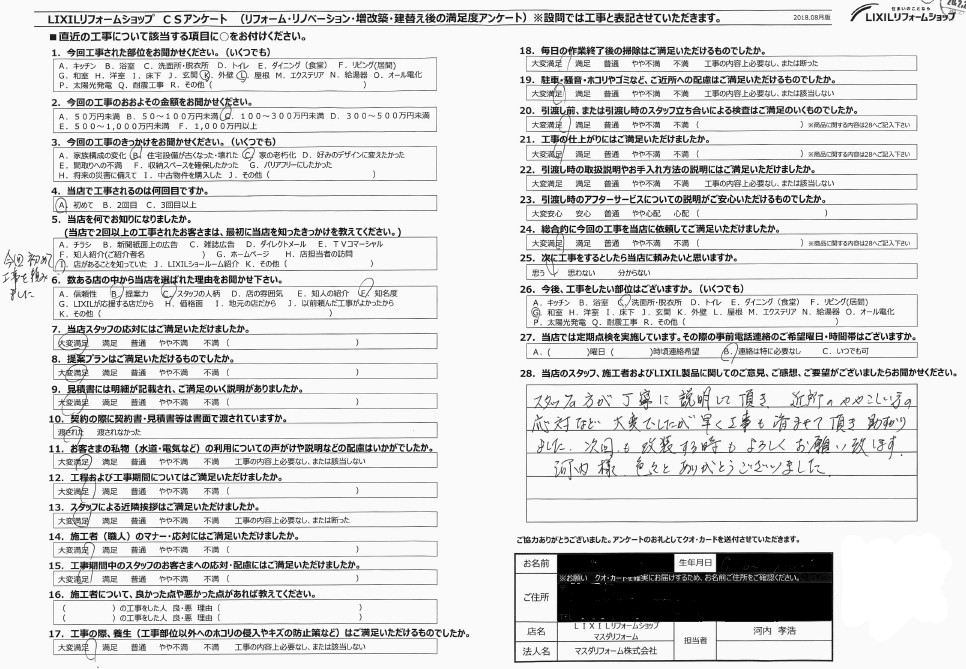 LIXILリフォームショップ CSアンケート (リフォーム・リノベーション・増改築・建替え後の満足度アンケート)※設問では工事と表記させていただきます。
2018.08月版
住まいのことなら
LIXILリフォームショップ
■直近の工事について該当する項目に○をお付けください。
1. 今回工事された部位をお聞かせください。(いくつでも)
A. キッチン B. 浴室 C. 洗面所・脱衣所 D. トイレ E. ダイニング(食堂) F. リビング(居間)
G. 和室 H. 洋室 I. 床下 J. 玄関 K. 外壁 L. 屋根 M. エクステリア N. 給湯器 O. オール電化
P. 太陽光発電 Q. 耐震工事 R. その他( )
2. 今回の工事のおおよその金額をお聞かせください。
A. 50万円未満 B. 50～100万円未満 C. 100～300万円未満 D. 300～500万円未満
E. 500～1,000万円未満 F. 1,000万円以上
3. 今回の工事のきっかけをお聞かせください。(いくつでも)
A. 家族構成の変化 B. 住宅設備が古くなった・壊れた C. 家の老朽化 D. 好みのデザインに変えたかった
E. 間取りへの不満 F. 収納スペースを確保したかった G. バリアフリーにしたかった
H. 将来の災害に備えて I. 中古物件を購入した J. その他( )
4. 当店で工事されるのは何回目ですか。
A. 初めて B. 2回目 C. 3回目以上
5. 当店を何でお知りになりましたか。
(当店で2回以上の工事をされたお客さまは、最初に当店を知ったきっかけを教えてください。)
A. チラシ B. 新聞紙面上の広告 C. 雑誌広告 D. ダイレクトメール E. TVコマーシャル
F. 知人紹介(ご紹介者名 ) G. ホームページ H. 店担当者の訪問
I. 店があることを知っていた J. LIXILショールーム紹介 K. その他( )
今回初めて
工事を頼み
ました
6. 数ある店の中から当店を選ばれた理由をお聞かせ下さい。
A. 信頼性 B. 提案力 C. スタッフの人柄 D. 店の雰囲気 E. 知人の紹介 F. 知名度
G. LIXILが応援する店だから H. 価格面 I. 地元の店だから J. 以前頼んだ工事がよかったから
K. その他( )
7. 当店スタッフの応対にはご満足いただけましたか。
大変満足 満足 普通 やや不満 不満 ( )
8. 提案プランはご満足いただけるものでしたか。
大変満足 満足 普通 やや不満 不満 ( )
9. 見積書には明細が記載され、ご満足のいく説明がありましたか。
大変満足 満足 普通 やや不満 不満 ( )
10. 契約の際に契約書・見積書等は書面で渡されていますか。
渡された 渡されなかった
11. お客さまの私物(水道・電気など)の利用についての声がけや説明などの配慮はいかがでしたか。
大変満足 満足 普通 やや不満 不満 工事の内容上必要なし、または該当しない
12. 工程および工事期間についてはご満足いただけましたか。
大変満足 満足 普通 やや不満 不満 ( )
13. スタッフによる近隣挨拶はご満足いただけましたか。
大変満足 満足 普通 やや不満 不満 工事の内容上必要なし、または断った
14. 施工者(職人)のマナー・応対にはご満足いただけましたか。
大変満足 満足 普通 やや不満 不満 ( )
15. 工事期間中のスタッフのお客さまへの応対・配慮にはご満足いただけましたか。
大変満足 満足 普通 やや不満 不満 ( )
16. 施工者について、良かった点や悪かった点があれば教えてください。
( )の工事をした人 良・悪 理由( )
( )の工事をした人 良・悪 理由( )
17. 工事の際、養生(工事部位以外へのホコリの侵入やキズの防止策など)はご満足いただけるものでしたか。
大変満足 満足 普通 やや不満 不満 工事の内容上必要なし、または該当しない
18. 毎日の作業終了後の掃除はご満足いただけるものでしたか。
大変満足 満足 普通 やや不満 不満 工事の内容上必要なし、または断った
19. 駐車・騒音・ホコリやゴミなど、ご近所への配慮はご満足いただけるものでしたか。
大変満足 満足 普通 やや不満 不満 工事の内容上必要なし、または該当しない
20. 引渡し前、または引渡し時のスタッフ立ち合いによる検査はご満足のいくものでしたか。
大変満足 満足 普通 やや不満 不満 ( ) ※商品に関する内容は28へご記入下さい
21. 工事の仕上がりにはご満足いただけましたか。
大変満足 満足 普通 やや不満 不満 ( ) ※商品に関する内容は28へご記入下さい
22. 引渡し時の取扱説明やお手入れ方法の説明にはご満足いただけましたか。
大変満足 満足 普通 やや不満 不満 工事の内容上必要なし、または該当しない
23. 引渡し時のアフターサービスについての説明がご安心いただけるものでしたか。
大変安心 安心 普通 やや心配 心配 ( )
24. 総合的に今回の工事を当店に依頼してご満足いただけましたか。
大変満足 満足 普通 やや不満 不満 ( ) ※商品に関する内容は28へご記入下さい
25. 次に工事をするとしたら当店に頼みたいと思いますか。
思う 思わない 分からない
26. 今後、工事をしたい部位はございますか。(いくつでも)
A. キッチン B. 浴室 C. 洗面所・脱衣所 D. トイレ E. ダイニング(食堂) F. リビング(居間)
G. 和室 H. 洋室 I. 床下 J. 玄関 K. 外壁 L. 屋根 M. エクステリア N. 給湯器 O. オール電化
P. 太陽光発電 Q. 耐震工事 R. その他( )
27. 当店では定期点検を実施しています。その際の事前電話連絡のご希望曜日・時間帯はございますか。
A. ( )曜日 ( )時頃連絡希望 B. 連絡は特に必要なし C. いつでも可
28. 当店のスタッフ、施工者およびLIXIL製品に関してのご意見、ご感想、ご要望がございましたらお聞かせください。
スタッフの方が丁寧に説明して頂き 近所のややこしい方の
応対など大変でしたが早く工事も済ませて頂き助かり
ました。次回も改装する時もよろしくお願い致します。
河内様 色々とありがとうございました
ご協力ありがとうございました。アンケートのお礼としてクオ・カードを送付させていただきます。
お名前 生年月日
※お願い クオ・カードを確実にお届けするため、お名前ご住所をご確認ください。
ご住所
店名 LIXILリフォームショップ マスダリフォーム 担当者 河内 孝浩
法人名 マスダリフォーム株式会社